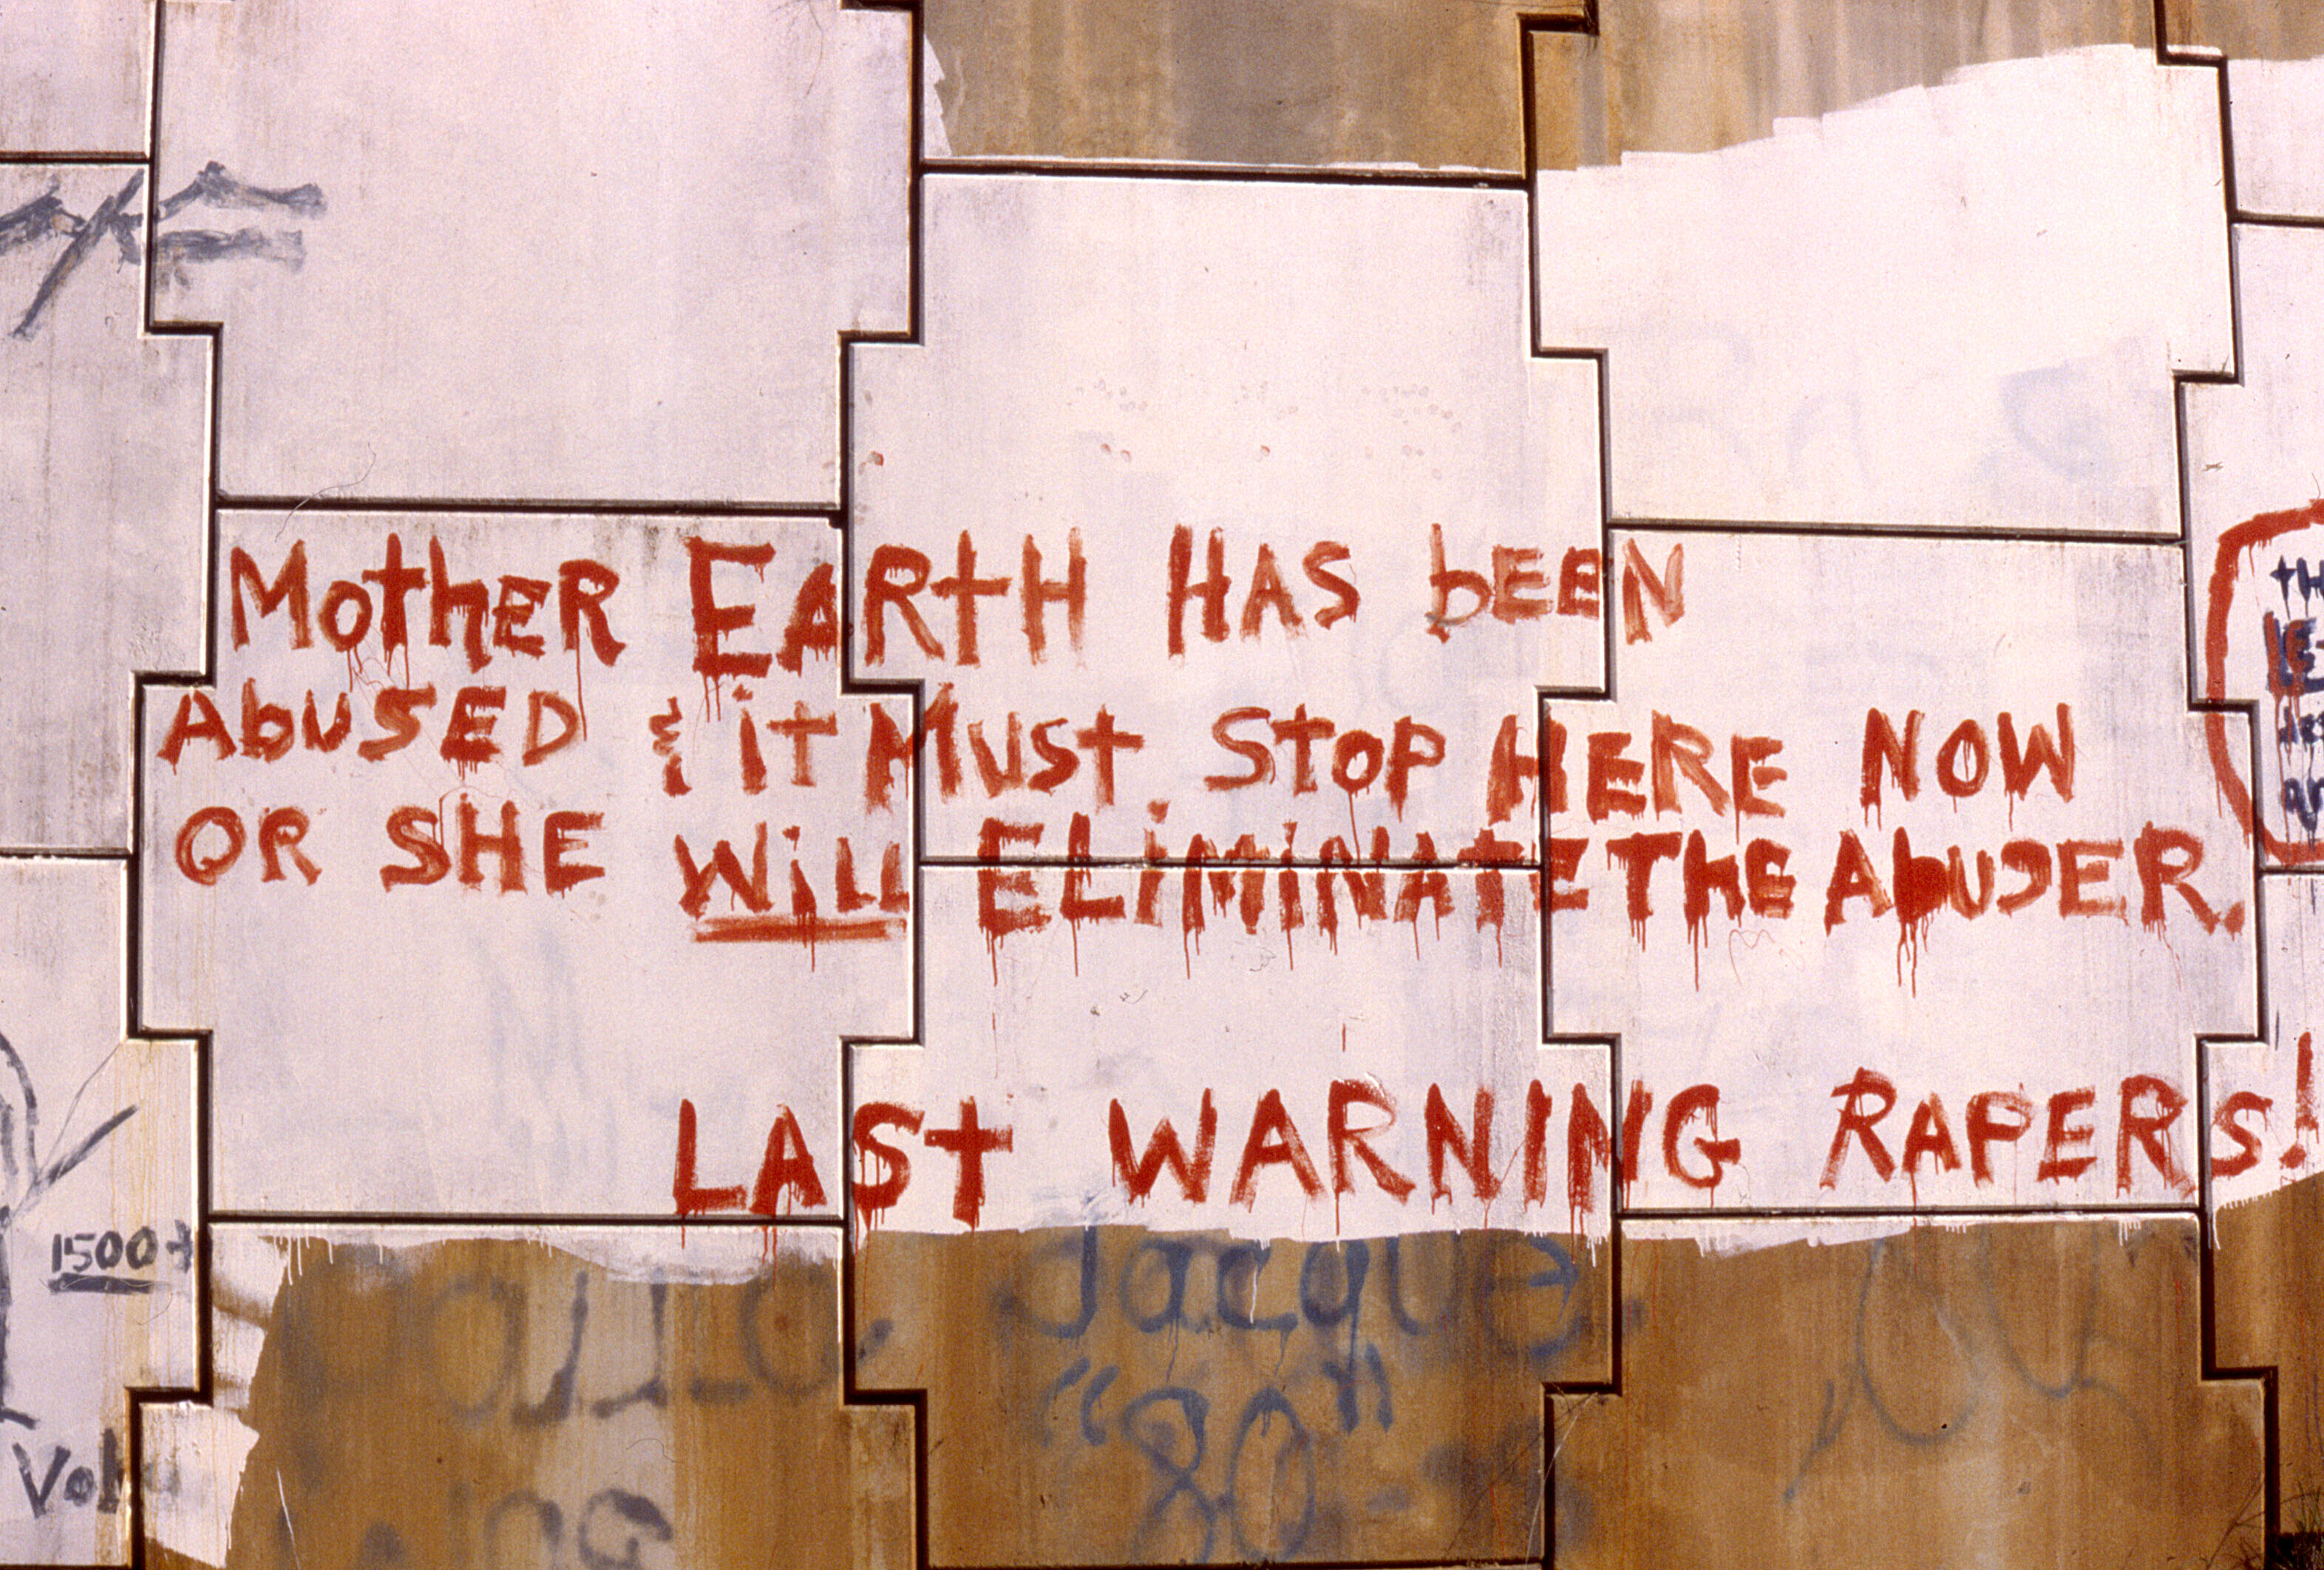 MotHER EARtH HAS bEEN
AbUSED & it MUSt StOP HERE NOW
OR SHE WiLL ELiMiNATE THE AbUSER.
LASt WARNING RAPERS!
1500+
Jacque
"80"